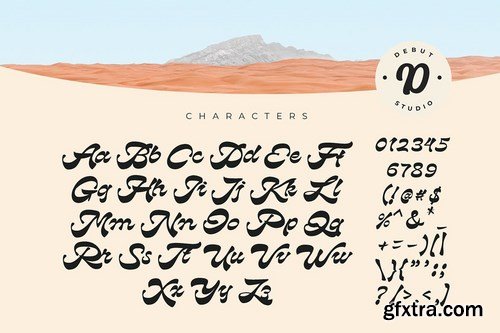 DEBUT
D
STUDIO
CHARACTERS
Aa Bb Cc Dd Ee Ff
Gg Hh Ii Jj Kk Ll
Mm Nn Oo Pp Qq
Rr Ss Tt Uu Vv Ww
Xx Yy Zz
012345
6789
(!@#$
%^&*
+=-)(|¯
\}{"":;
?/><,)
gfxtra.com